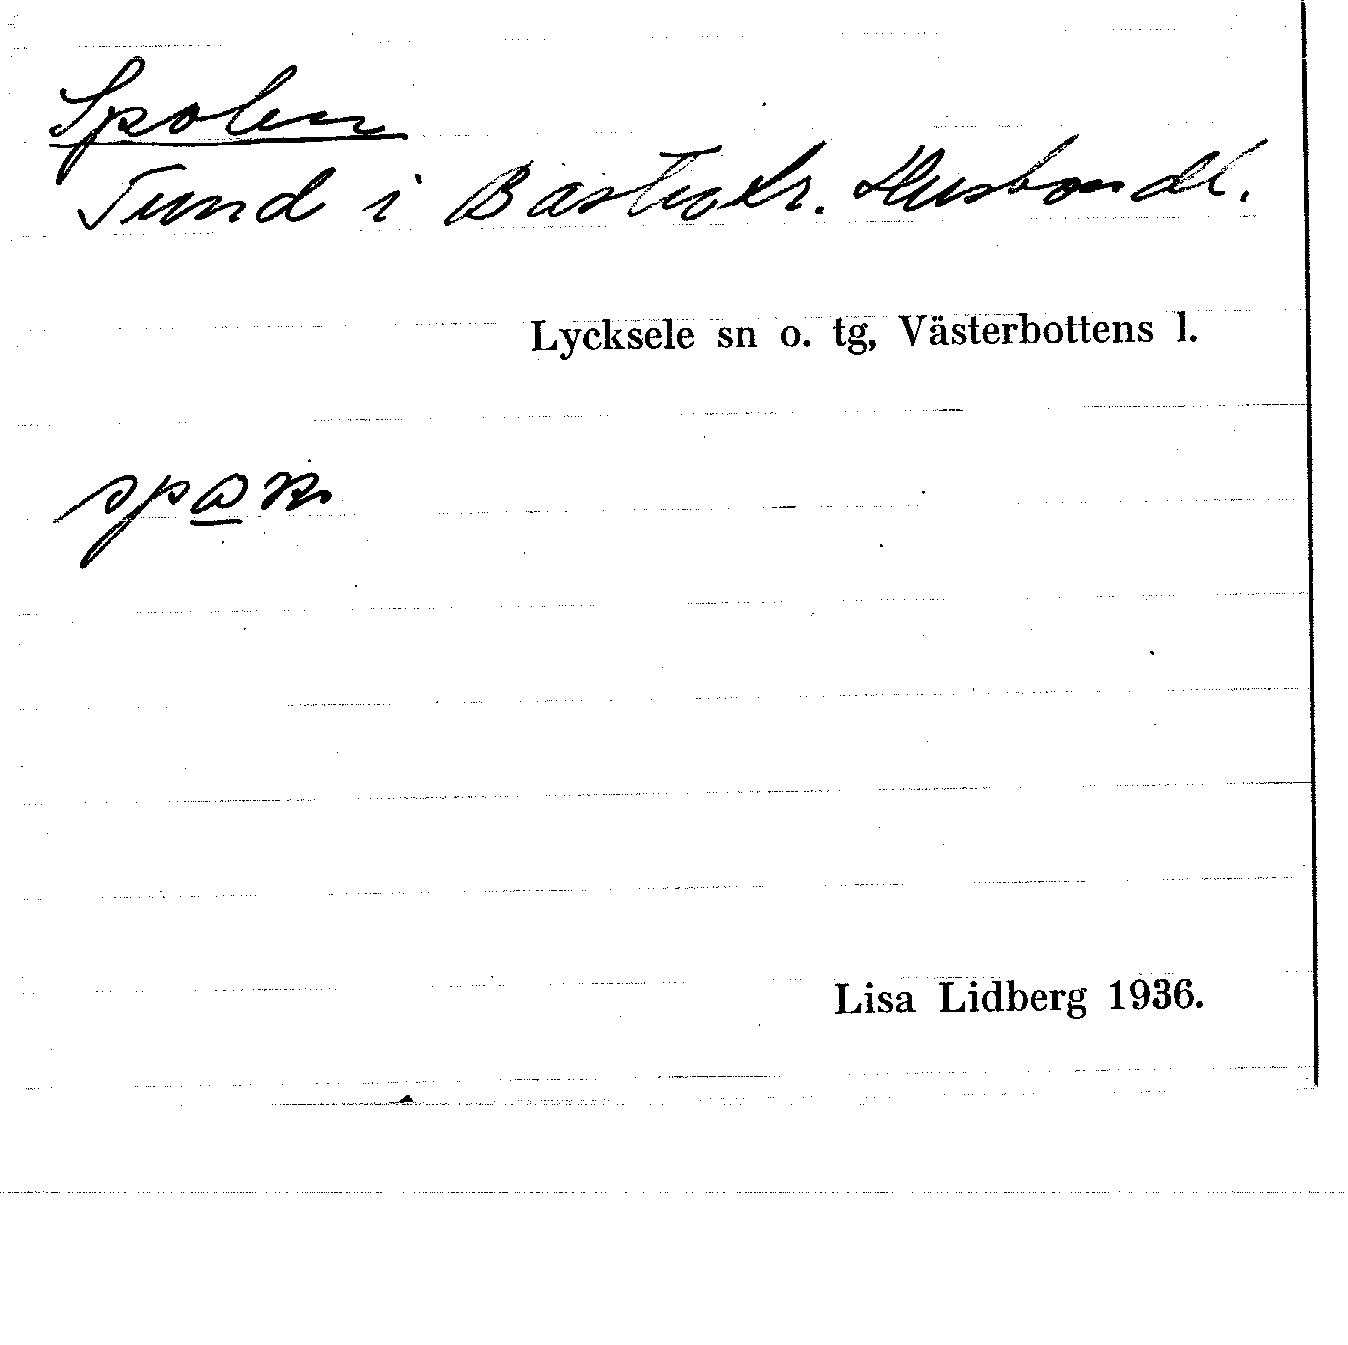 Spolen
Sund i Bastutr. Husbondl.
Lycksele sn o. tg, Västerbottens l.
Lisa Lidberg 1936.